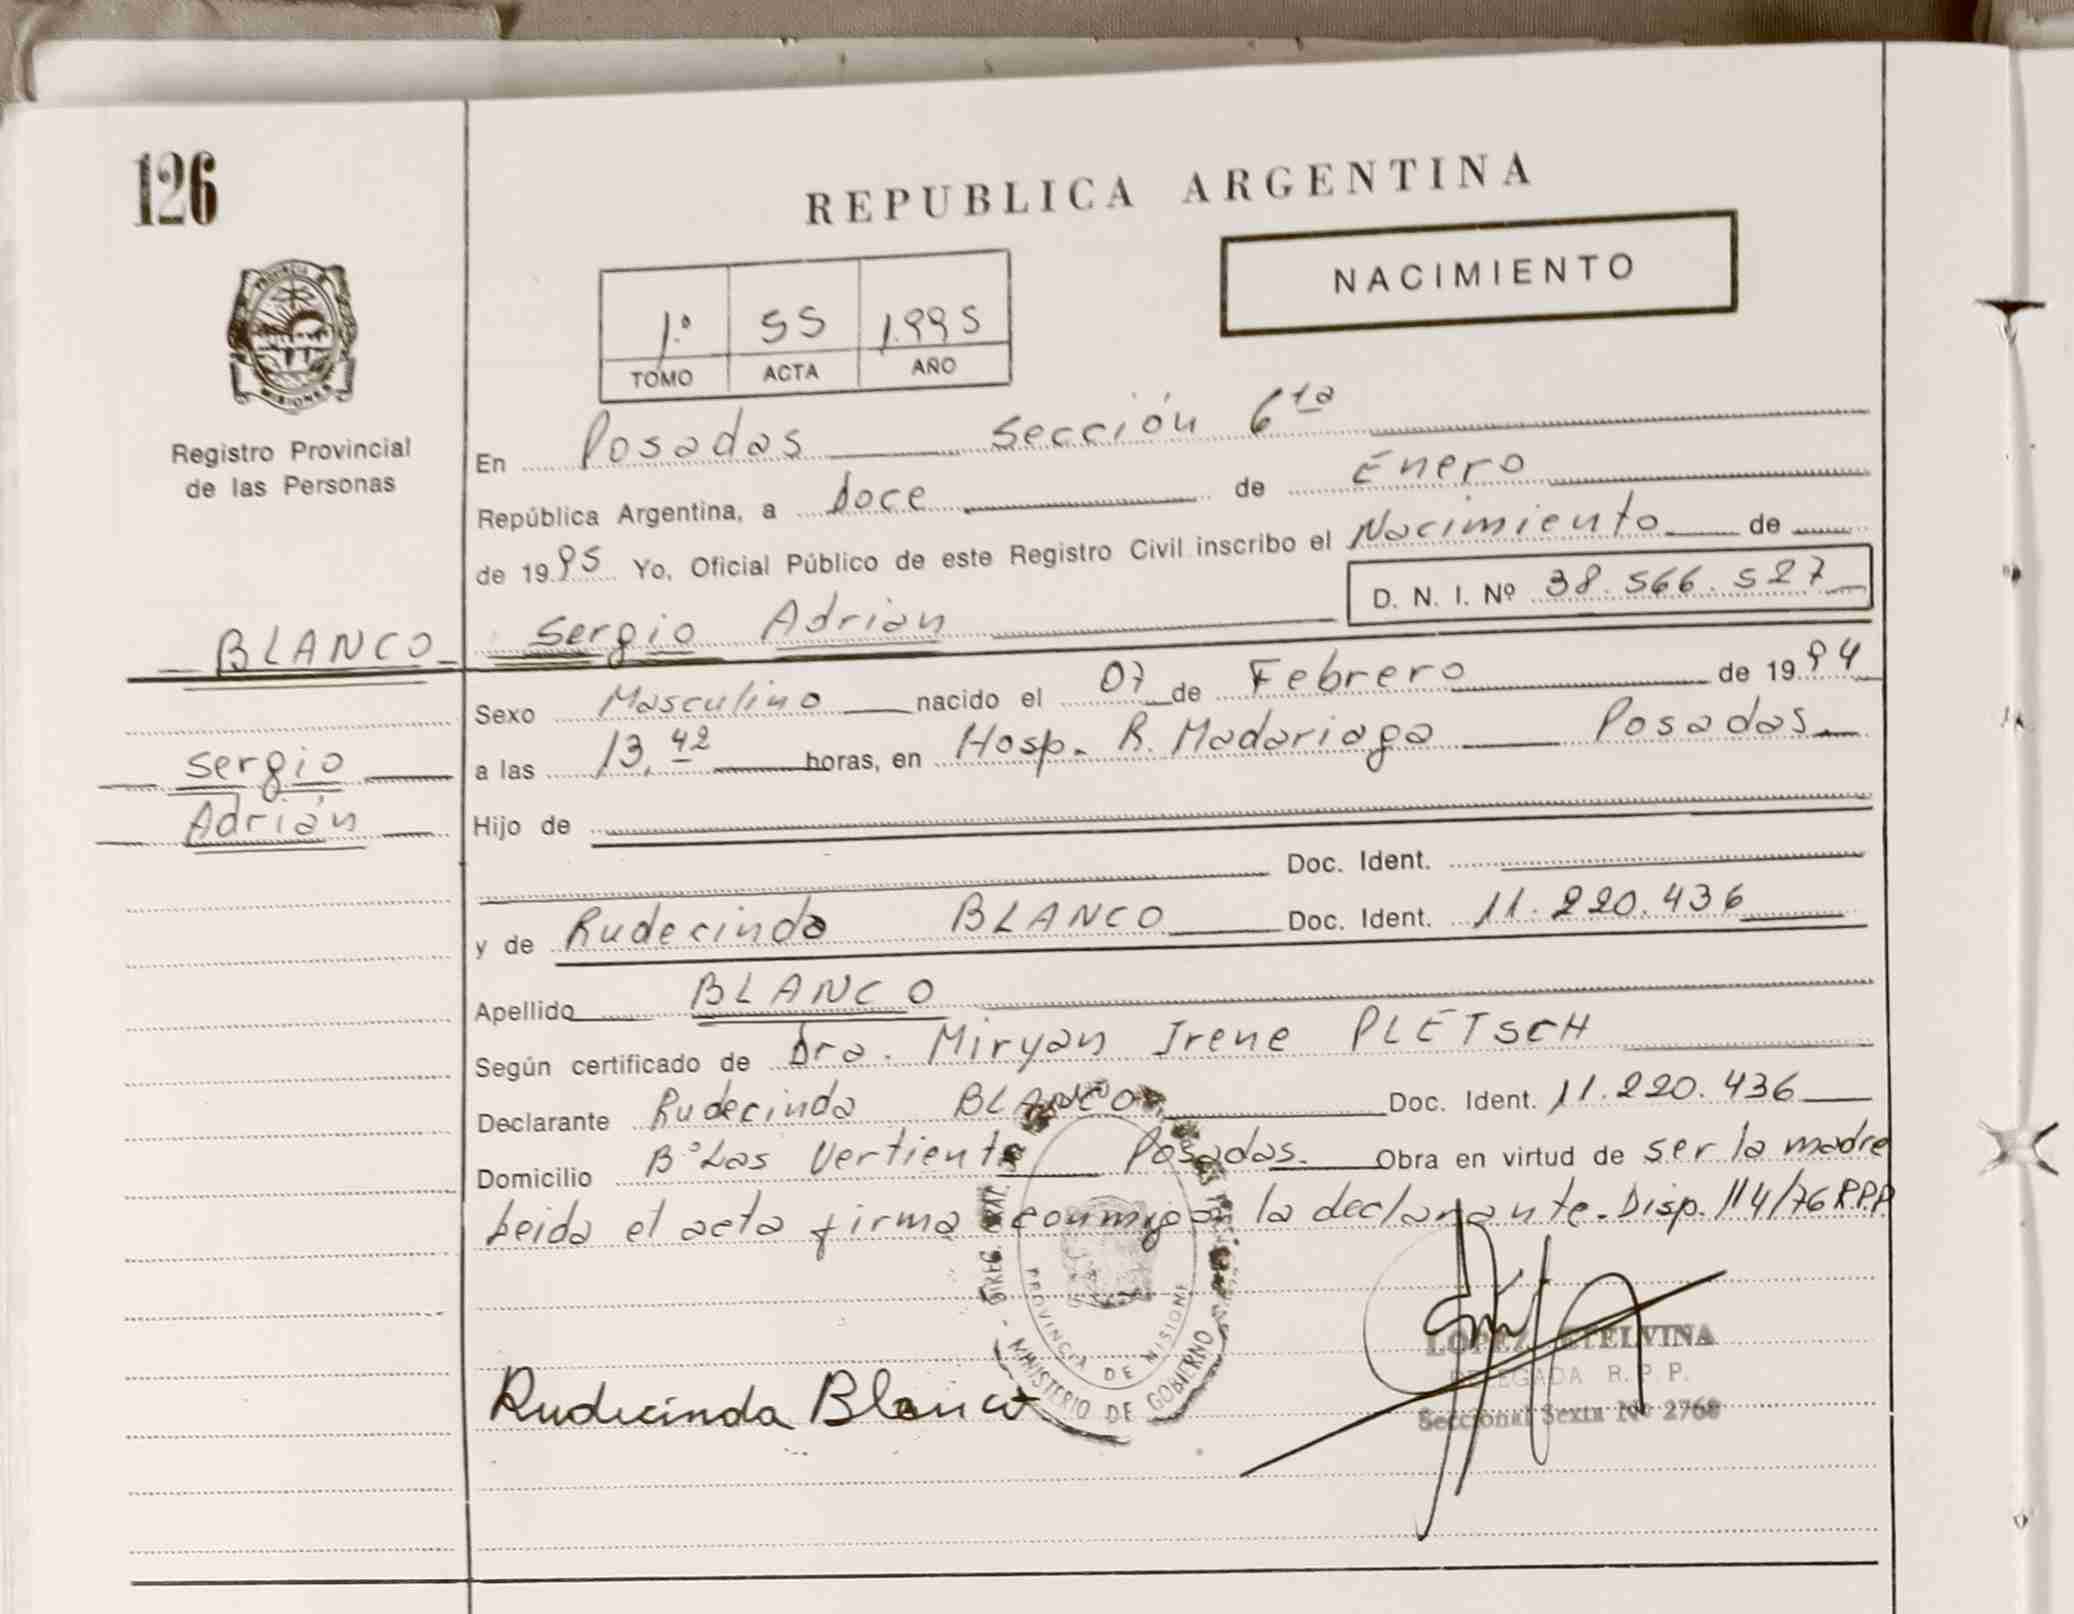 126
REPUBLICA ARGENTINA
NACIMIENTO
1º 55 1.995
TOMO ACTA AÑO
PROVINCIA
MISIONES
Registro Provincial
de las Personas
En Posadas Sección 6ta
República Argentina, a Doce de Enero
de 1995 Yo, Oficial Público de este Registro Civil inscribo el Nacimiento de
D. N. I. Nº 38.566.527
BLANCO Sergio Adrian
Sexo Masculino nacido el 07 de Febrero de 1994
Sergio a las 13,42 horas, en Hosp. R. Madariaga Posadas
Adrián Hijo de
Doc. Ident.
y de Rudecinda BLANCO Doc. Ident. 11.220.436
Apellido BLANCO
Según certificado de Dra. Miryan Irene PLETSCH
Declarante Rudecinda BLANCO Doc. Ident. 11.220.436
Domicilio Bº Las Vertiente Posadas. Obra en virtud de ser la madre
Leida el acta firma conmigo la declarante. Disp. 114/76 R.P.P.
PROVINCIA DE MISIONE
MINISTERIO DE GOBIERNO
LOPEZ ETELVINA
DELEGADA R. P. P.
Seccional Sexta Nº 2768
Rudecinda Blanco